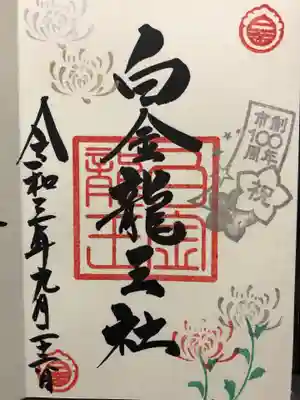 白金龍王社
白金
龍王
市創
100年
周
祝
令和三年九月